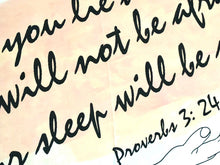 you lie
will not be afr
r sleep will be s
Proverbs 3:24